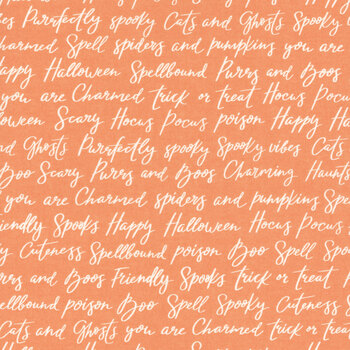 es Purrfectly spooky Cats and Ghosts Spooky
harmed Spell spiders and pumpkins you are
Happy Halloween Spellbound Purrs and Boos
you are Charmed trick or treat Hocus Pocus
loween Scary Hocus Pocus poison Happy Ha
nd Ghosts Purrfectly spooky Spooky vibes Cats
Boo Scary Purrs and Boos Charming Haunts
you are Charmed spiders and pumpkins Spe
iendly Spooks Happy Halloween Hocus Pocus
y Cuteness Spellbound poison Boo Spell Spo
rrs and Boos Friendly Spooks trick or treat H
llbound poison Boo Spell Spooky Cuteness S
Cats and Ghosts you are Charmed trick or trea